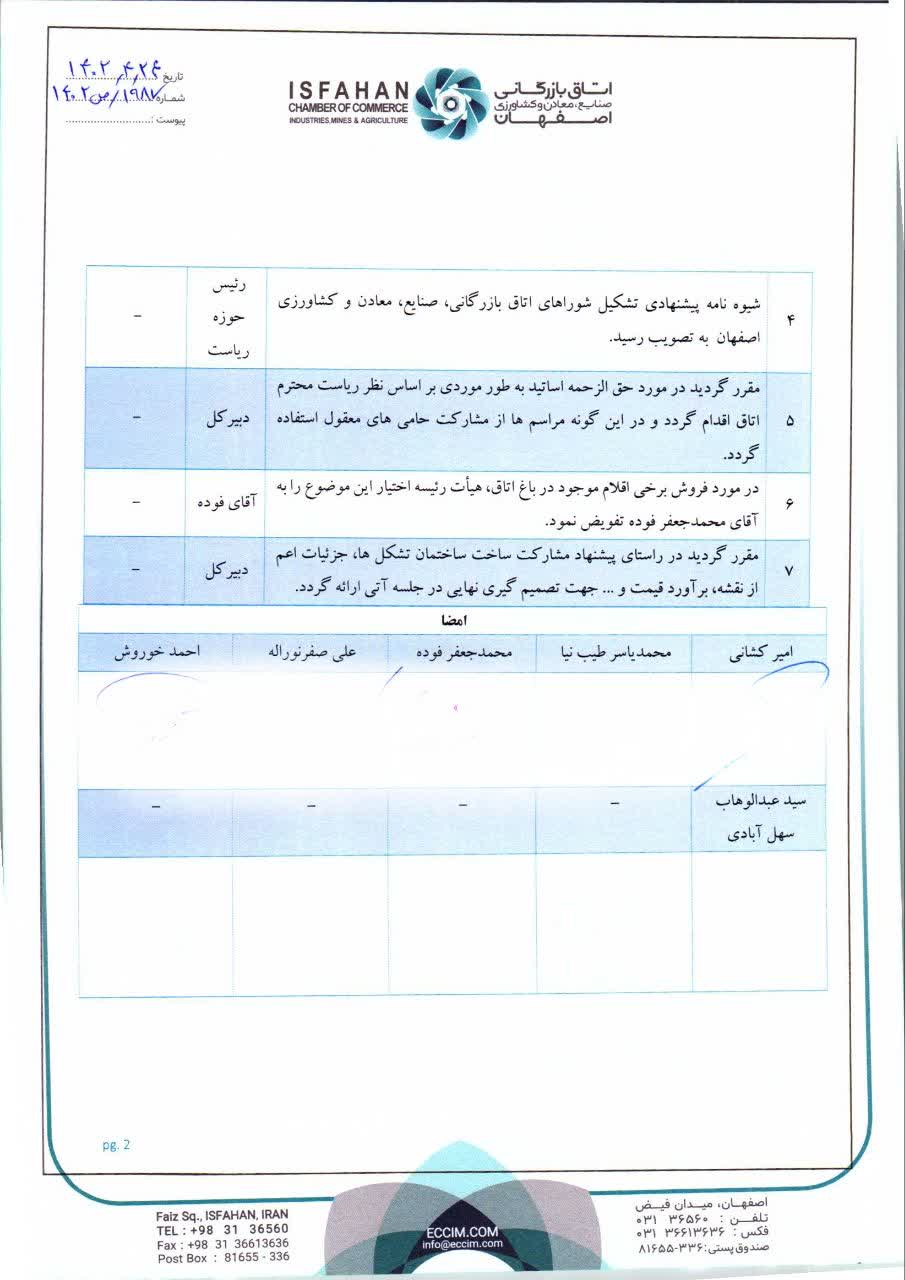 تاریخ ۱۴۰۲/۴/۲۴
شماره ۱۹۸۷/ص/۱۴۰۲
پیوست :
ISFAHAN
CHAMBER OF COMMERCE
INDUSTRIES, MINES & AGRICULTURE
اتاق بازرگانی
صنایع، معادن و کشاورزی
اصفهان
۴
شیوه نامه پیشنهادی تشکیل شوراهای اتاق بازرگانی، صنایع، معادن و کشاورزی
اصفهان به تصویب رسید.
رئیس
حوزه
ریاست
–
۵
مقرر گردید در مورد حق الزحمه اساتید به طور موردی بر اساس نظر ریاست محترم
اتاق اقدام گردد و در این گونه مراسم ها از مشارکت حامی های معقول استفاده
گردد.
دبیرکل
–
۶
در مورد فروش برخی اقلام موجود در باغ اتاق، هیأت رئیسه اختیار این موضوع را به
آقای محمدجعفر فوده تفویض نمود.
آقای فوده
–
۷
مقرر گردید در راستای پیشنهاد مشارکت ساخت ساختمان تشکل ها، جزئیات اعم
از نقشه، برآورد قیمت و ... جهت تصمیم گیری نهایی در جلسه آتی ارائه گردد.
دبیرکل
–
امضا
امیر کشانی محمدیاسر طیب نیا محمدجعفر فوده علی صفرنوراله احمد خوروش
سید عبدالوهاب – – – –
سهل آبادی
pg. 2
Faiz Sq., ISFAHAN, IRAN
TEL : +98 31 36560
Fax : +98 31 36613636
Post Box : 81655 - 336
ECCIM.COM
info@eccim.com
اصفهان، میدان فیض
تلفن : ۳۶۵۶۰ ۰۳۱
فکس : ۳۶۶۱۳۶۳۶ ۰۳۱
صندوق پستی: ۳۳۶-۸۱۶۵۵